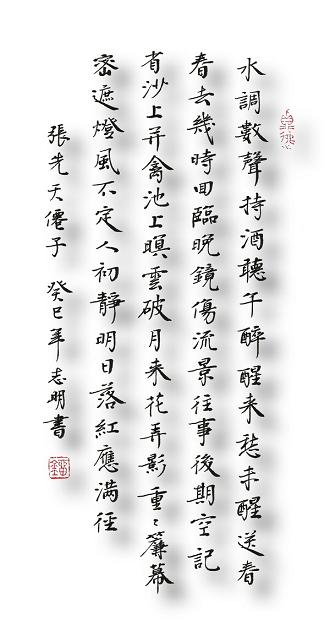 水調數聲持酒聽午醉醒来愁未醒送春
春去幾時回臨晚鏡傷流景往事後期空記
省沙上并禽池上暝雲破月来花弄影重〻簾幕
密遮燈風不定人初靜明日落紅應满徑
張先天僊子 癸巳年志明書